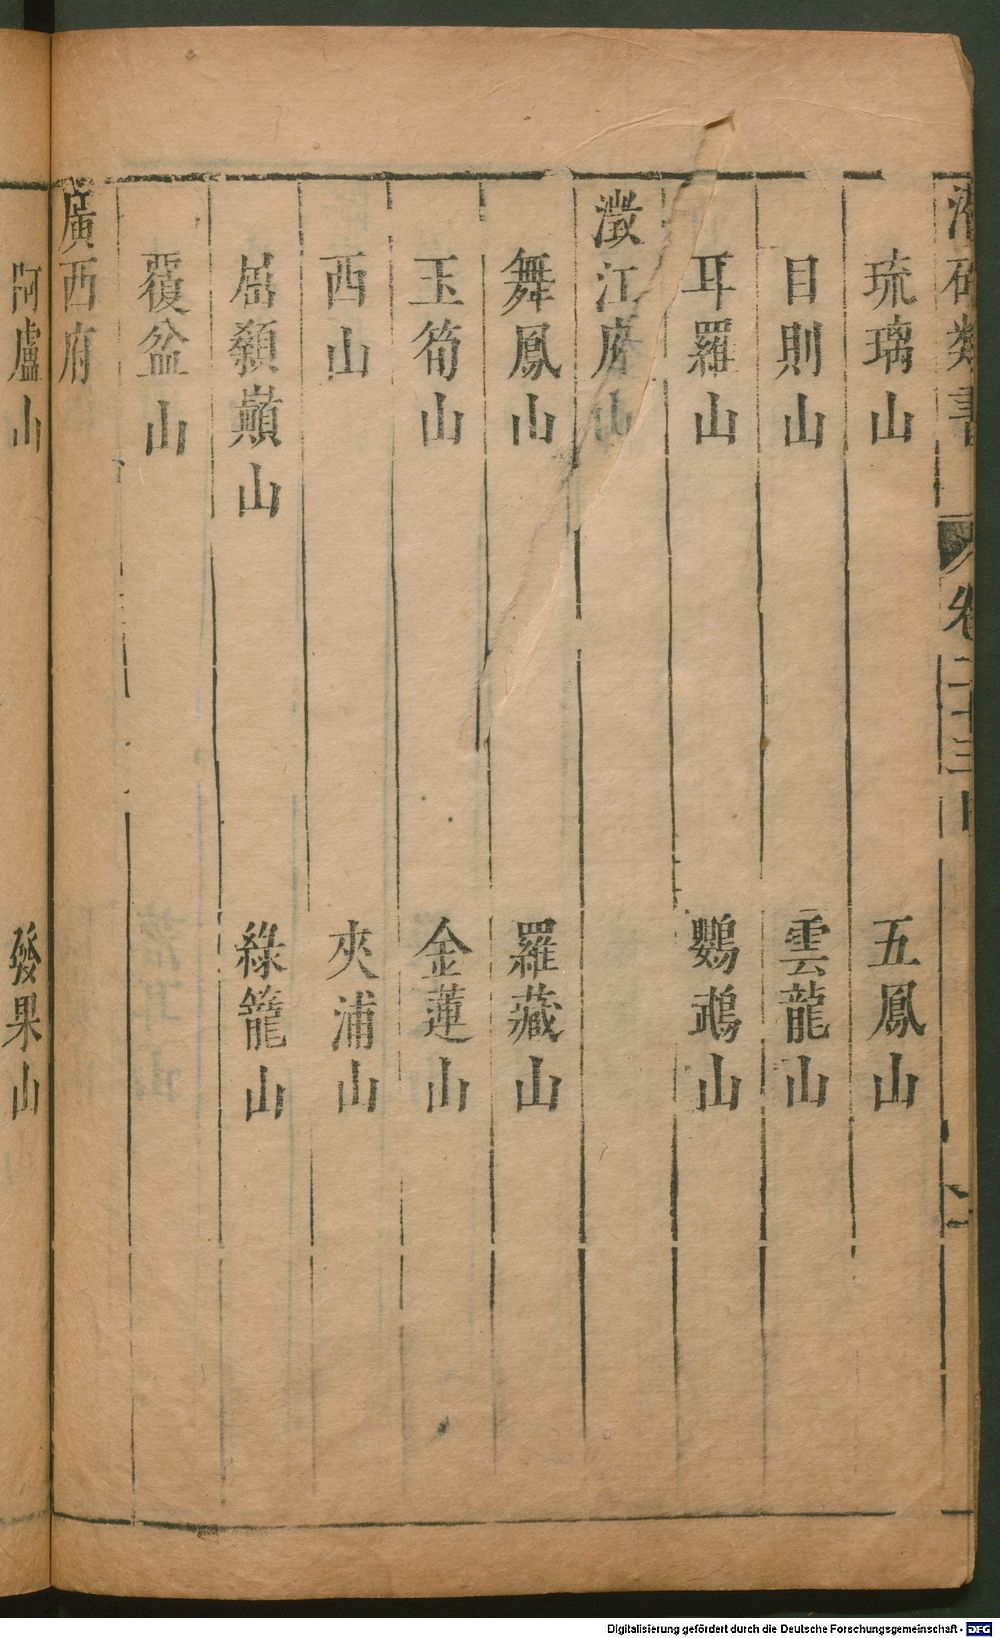 潛確類書 卷二十三目
琉璃山 五鳳山
目則山 雲龍山
耳羅山 鸚鵡山
澂江府山
舞鳳山 羅藏山
玉筍山 金蓮山
西山 夾浦山
屈顙巔山 綠籠山
覆盆山
廣西府
阿盧山 發果山
Digitalisierung gefördert durch die Deutsche Forschungsgemeinschaft - DFG